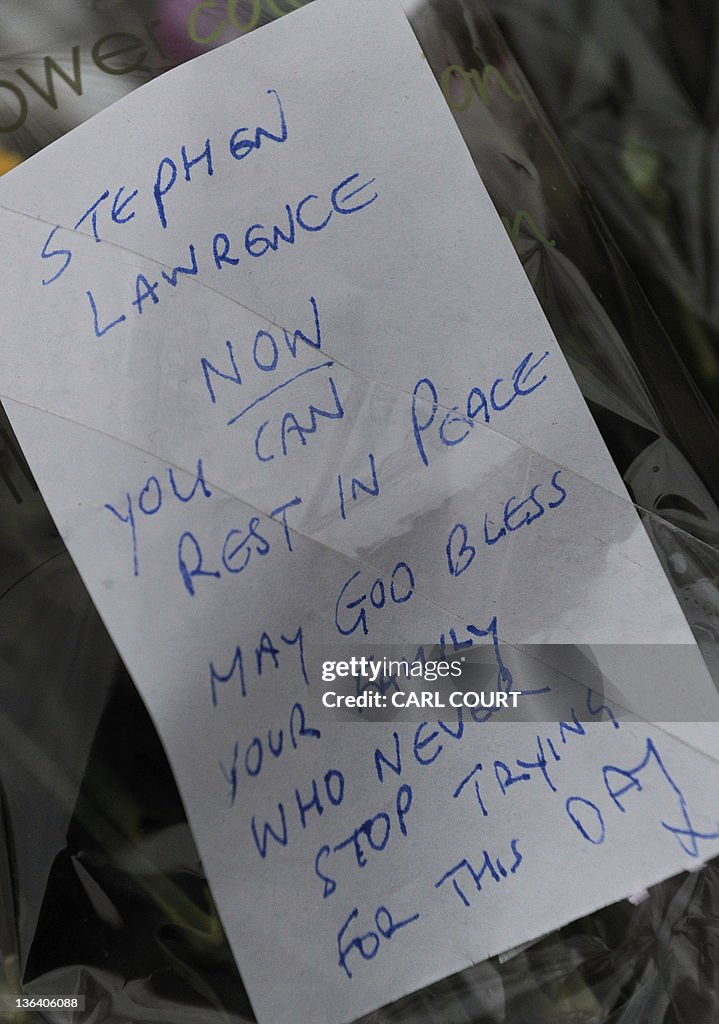 ower co
on
STEPHEN
LAWRENCE
NOW
YOU CAN
REST IN PEACE
MAY GOD BLESS
YOUR FAMILY
WHO NEVER
STOP TRYING
FOR THIS DAY
X
gettyimages®
Credit: CARL COURT
136406088